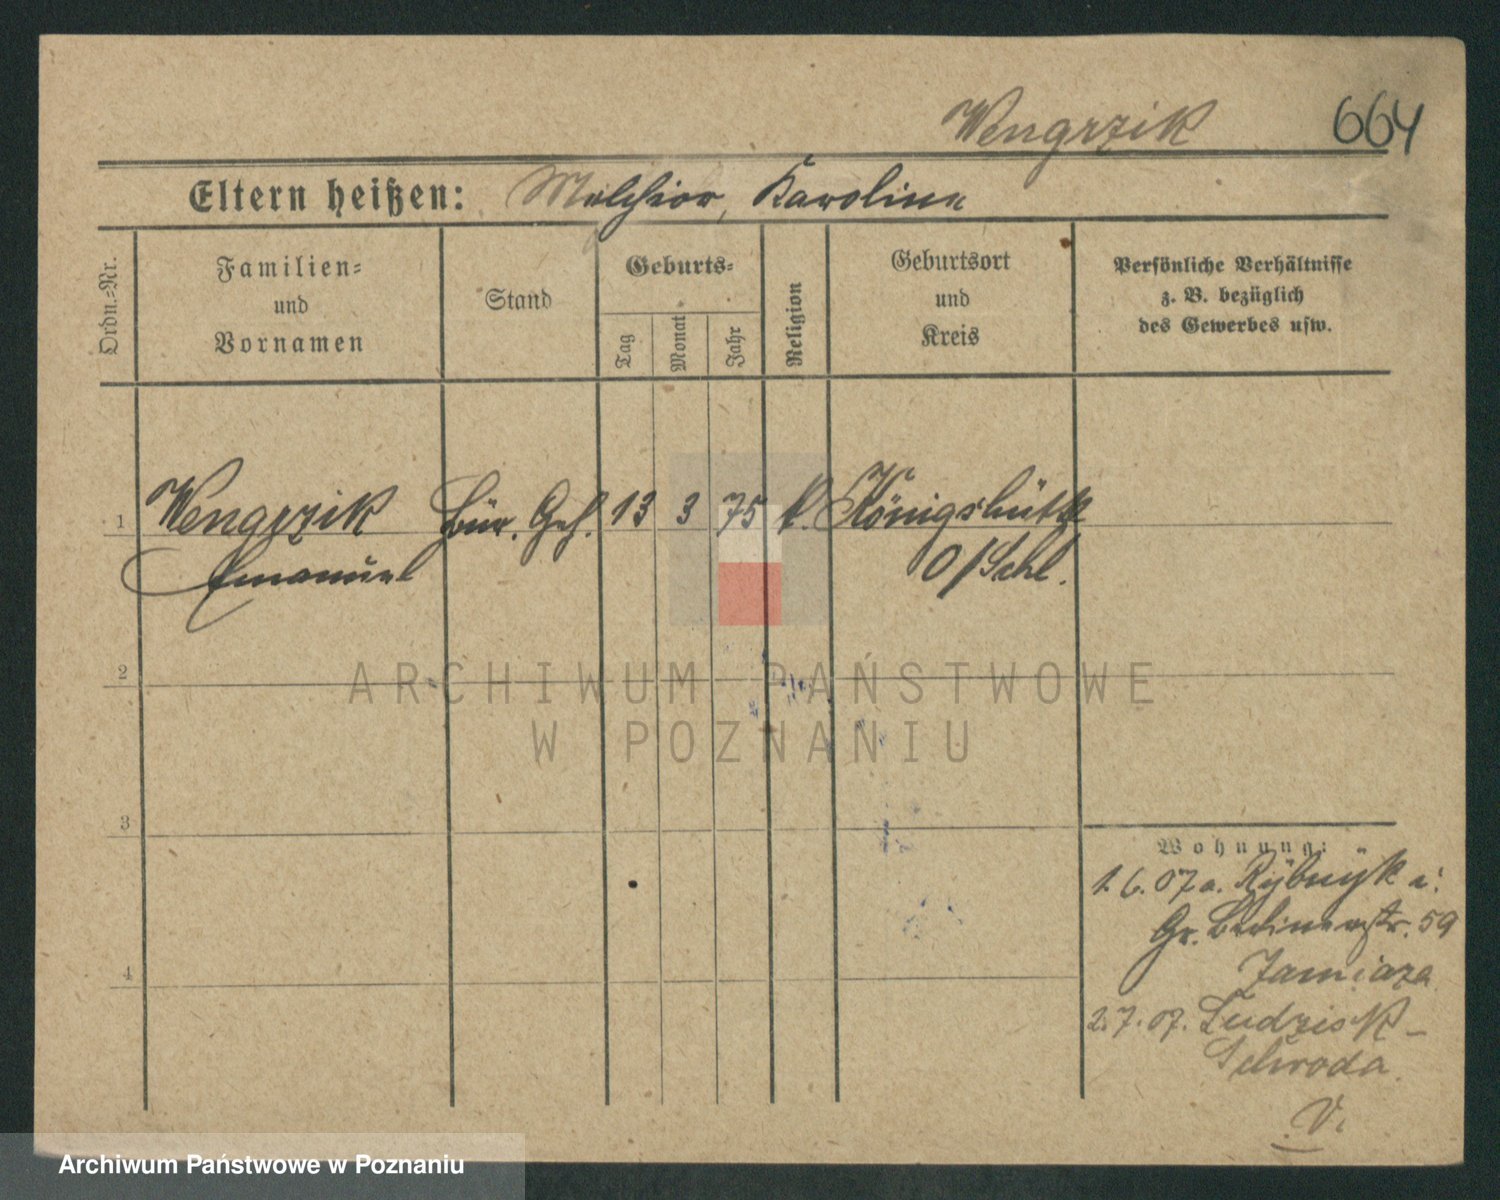 Wengrzik 664
Eltern heißen: Melchior, Karolina
Ordn.-Nr.
Familien-
und
Vornamen
Stand
Geburts-
Tag
Monat
Jahr
Religion
Geburtsort
und
Kreis
Persönliche Verhältnisse
z. B. bezüglich
des Gewerbes usw.
1 Wengrzik Bür. Geh. 13 3 75 k. Königshütte
Emanuel O/Schl.
2
ARCHIWUM PAŃSTWOWE
W POZNANIU
3
Wohnung:
1. 6. 07 a. Rybnyk i.
Gr. Berlinerstr. 59
4
2. 7. 07. Ludzisk -
Schroda.
V.
Archiwum Państwowe w Poznaniu